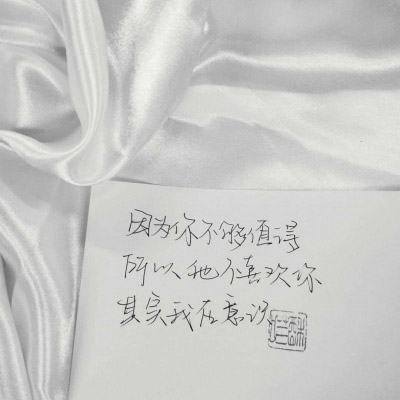 因为你不够值得
所以他不喜欢你
其实我在意